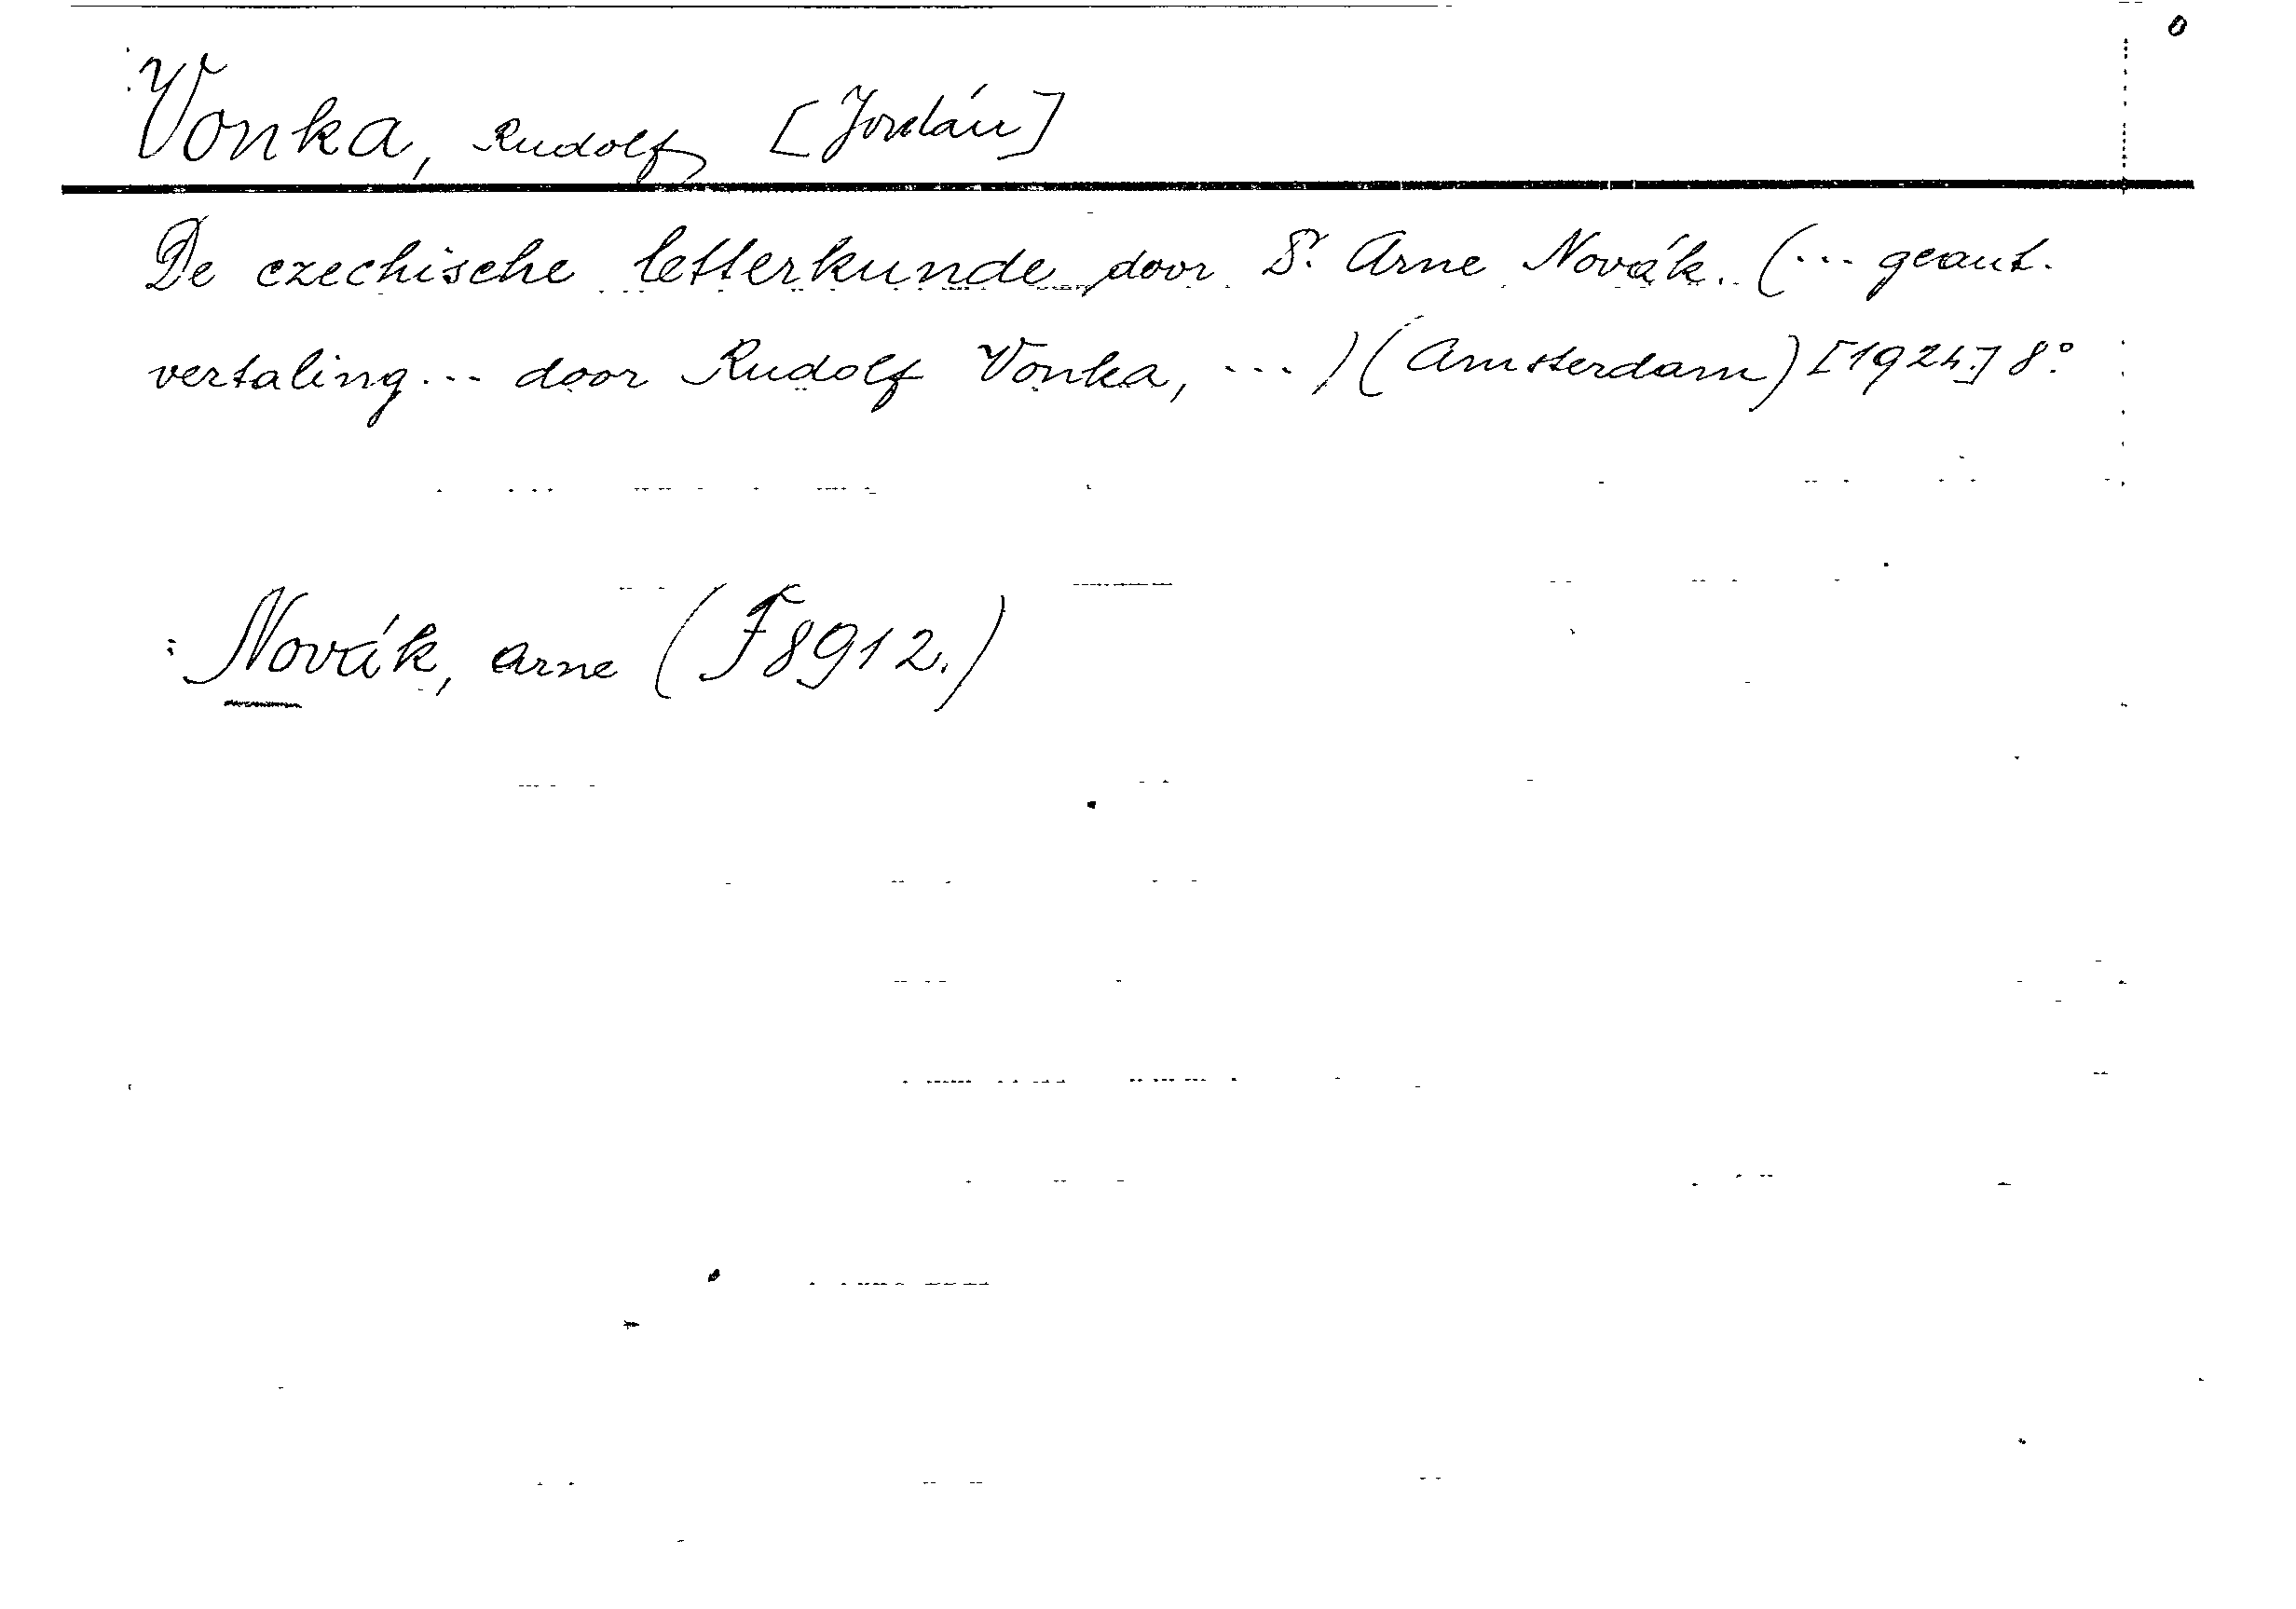 Vonka, Rudolf [Jordán]
De czechische letterkunde door Dr. Arne Novák. (... geaut.
vertaling... door Rudolf Vonka, ...) (Amsterdam) [1924.] 8°.
Novák, Arne (F8912.)